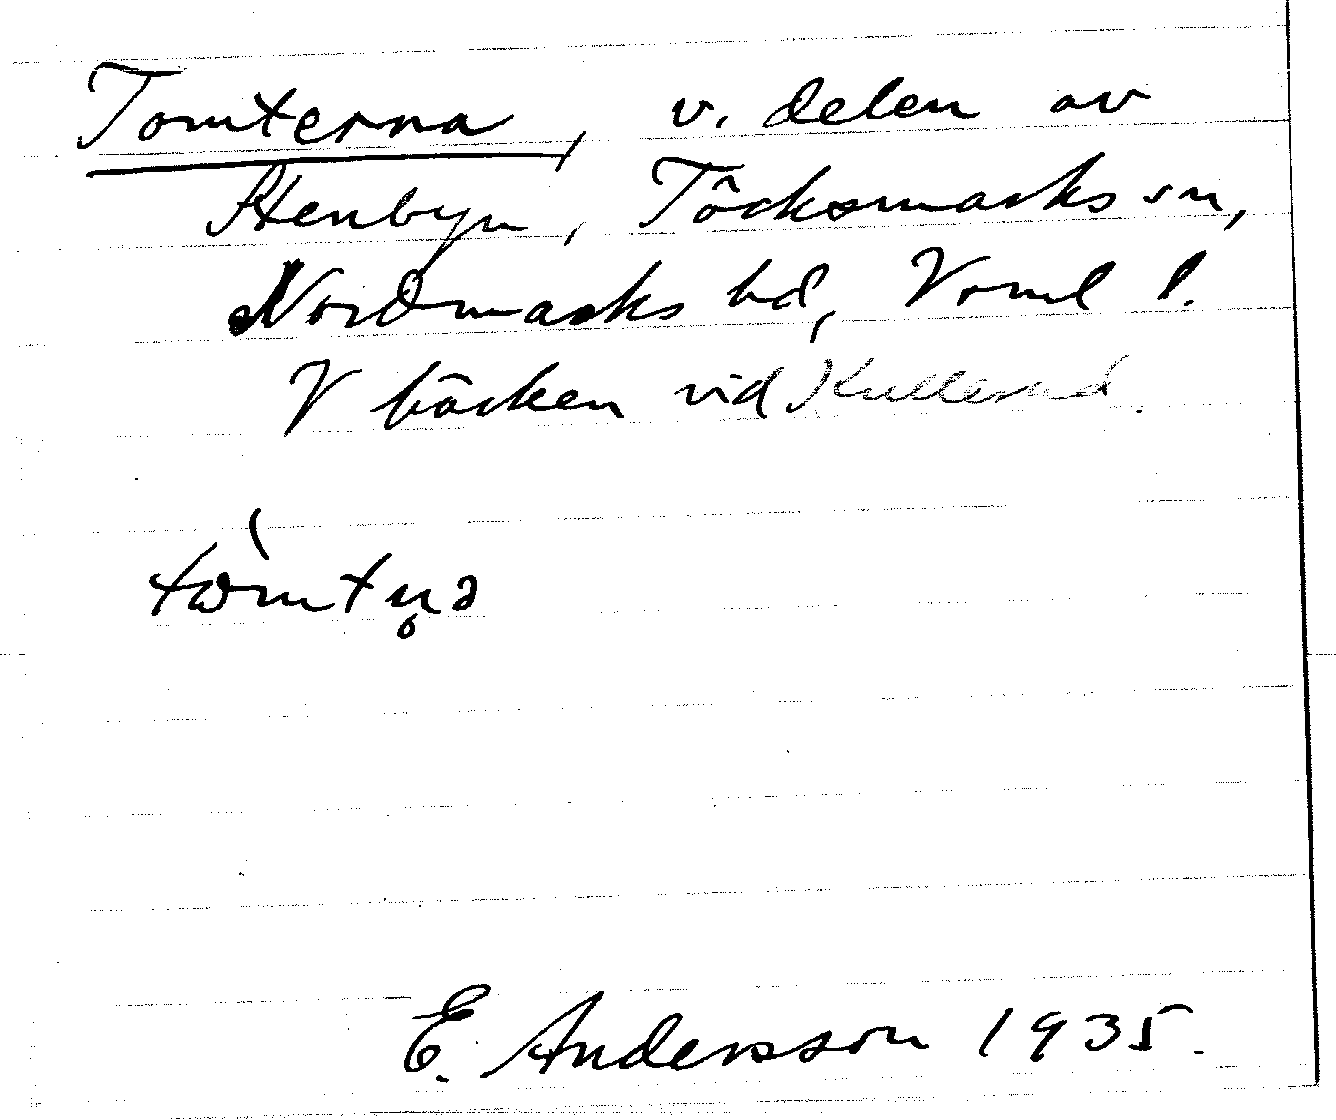 Tomterna, v. delen av
Stenbyn, Töcksmarks sn,
Nordmarks hd, Vrml l.
V bäcken vid Kullerud.
tɷ̀mtn̥ə
E. Andersson 1935.